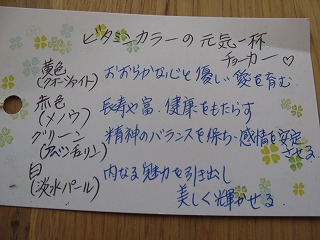 ビタミンカラーの元気一杯
チョーカー♡
黄色 おおらかな心と優しい愛を育む
(クオーツァイト)
赤色 長寿や富、健康をもたらす
(メノウ)
グリーン 精神のバランスを保ち、感情を安定
(アベンチュリン) させる
白 内なる魅力を引き出し
(淡水パール) 美しく輝かせる.